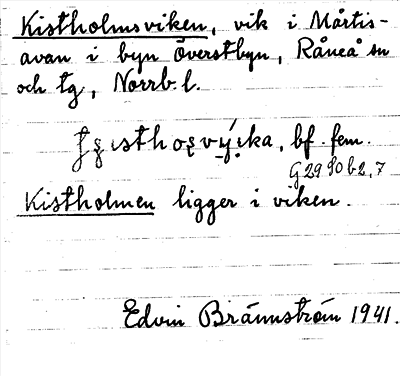 Kistholmsviken, vik i Mårtis-
avan i byn Överstbyn, Råneå sn
och tg, Norrb. l.
bf. fem.
G2990b2,7
Kistholmen ligger i viken.
Edvin Brännström 1941.